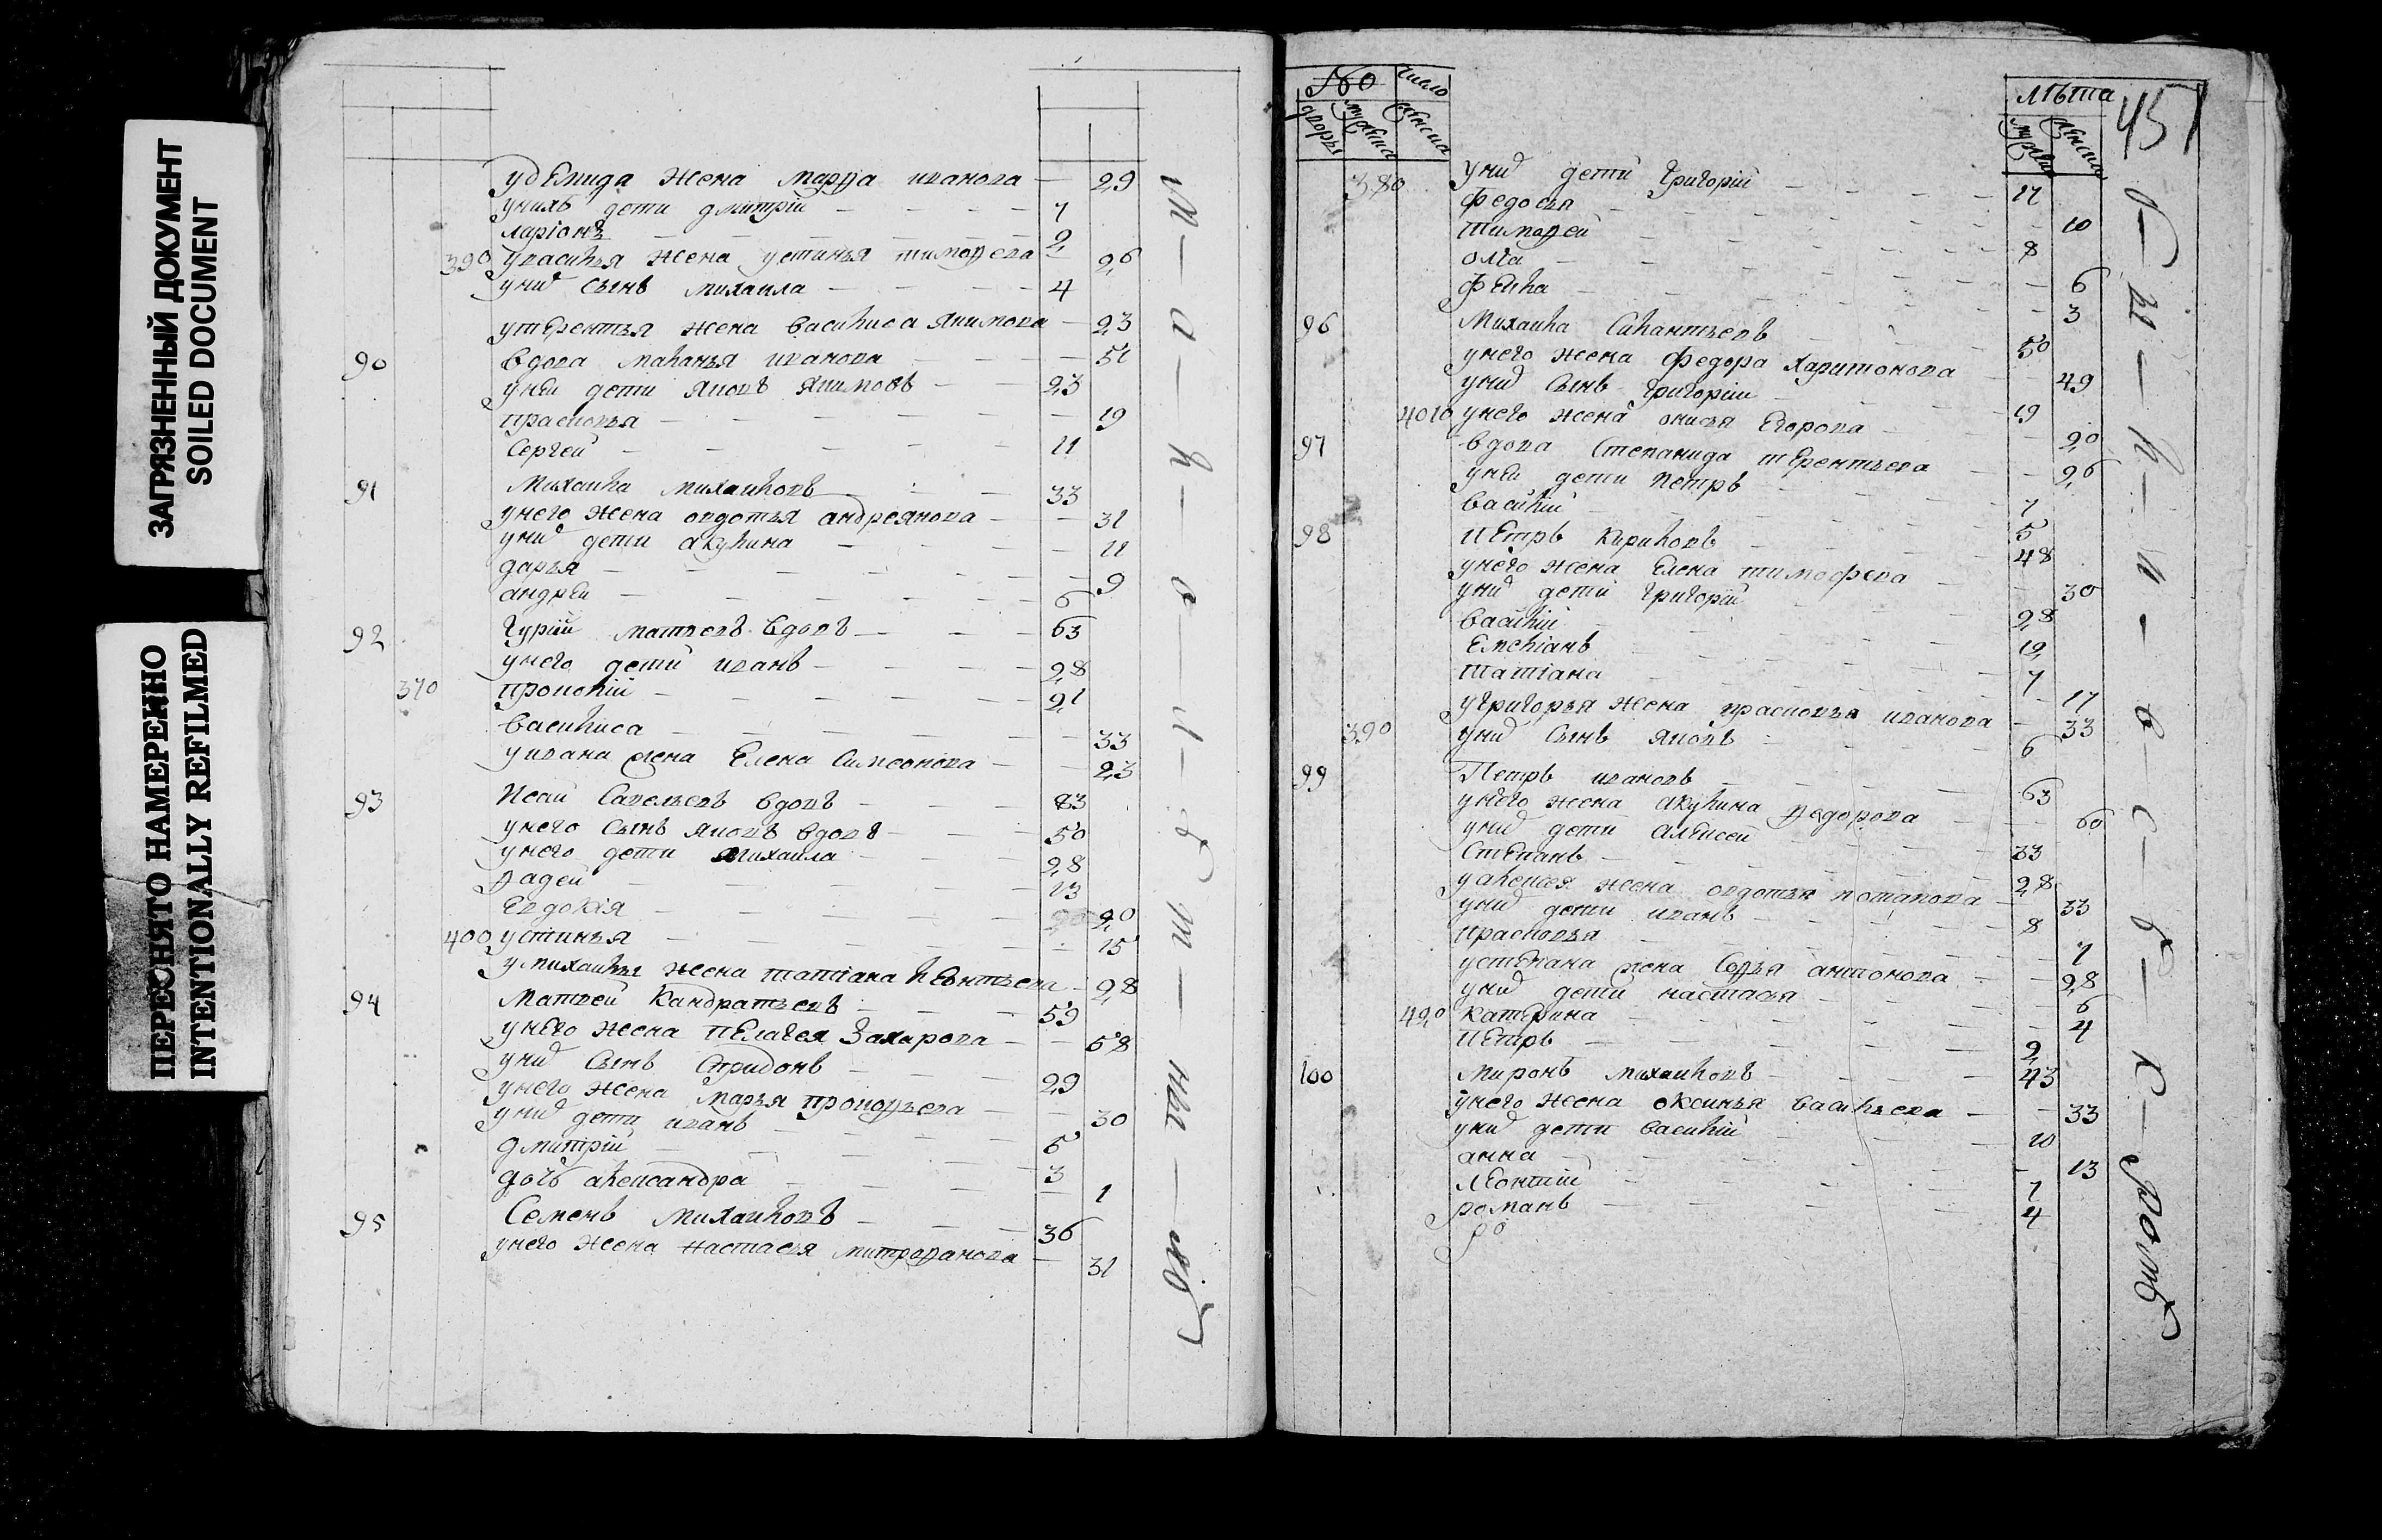 ЗАГРЯЗНЕННЫЙ ДОКУМЕНТ
SOILED DOCUMENT
ПЕРЕСНЯТО НАМЕРЕННО
INTENTIONALLY REFILMED
у демида жена марфа иванова — 29
унихъ дети дмитрій — 7
ларіонъ — 2
390 увасилья жена устинья тимофеева — 26
унид сынъ михаила — 4
утерентья жена василиса якимова — 23
90 вдова маланья иванова — 51
уней дети яковъ якимовъ — 23
прасковья — 19
Сергей — 11
91 Михаила михаиловъ — 33
унего жена овдотья андреянова — 31
унид дети акулина — 11
дарья — 9
андрей — 6
92 Гурій матвеевъ вдовъ — 63
унего дети иванъ — 28
370 прокофій — 21
василиса — 33
уивана жена Елена Симеонова — 23
93 Исаи Савельевъ вдовъ — 83
унего сынъ яковъ вдовъ — 50
унего дети михаила — 28
фадей — 13
Евдокія — 20
400 устинья — 15
умихаилы жена татіана леонтьева — 28
94 Матвей Кандратьевъ — 59
унего жена пелагея Захарова — 58
унид сынъ Спридонъ — 29
унего жена марья прокофьева — 30
унид дети иванъ
дмитрій — 5
дочь александра — 3
1
95 Семенъ Михаиловъ — 36
унего жена настасья митрофанова — 31
№ число
дворы мужеска женска
лѣта
мужеска женска
451
380 унид дети Григорій — 17
федосья — 10
тимофей — 8
олга — 6
фекла — 3
96 Михаила Силантьевъ — 50
унего жена федора харитонова — 49
унид сынъ григоріи — 19
4010 унего жена онисья Егорова — 20
97 вдова Степанида терентьева — 26
уней дети петръ — 7
василій — 5
98 Петръ Кириловъ — 48
унего жена елена тимофеева — 30
унид дети григорій — 28
василій — 12
Емеліанъ — 7
татіана — 17
угригорья жена прасковья иванова — 33
390 унид сынъ яковъ — 6
99 Петръ ивановъ — 63
унего жена акулина федорова — 60
унид дети алексей — 33
степанъ — 28
уалексея жена овдотья потапова — 33
унид дети иванъ — 8
прасковья — 7
устепана жена Софья антонова — 28
унид дети настасья — 6
420 катерина — 4
петръ — 2
100 Миронъ михаиловъ — 43
унего жена оксинья васильева — 33
унид дети василій — 10
анна — 13
леонтій — 7
романъ — 4